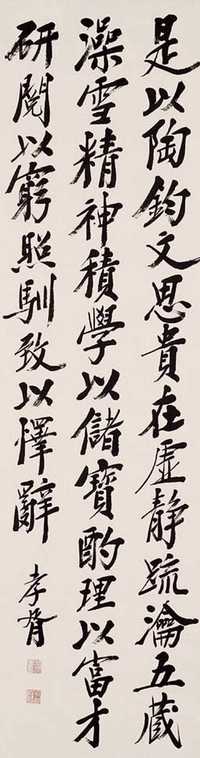 是以陶鈞文思貴在虛靜疏瀹五藏
澡雪精神積學以儲寶酌理以富才
研閱以窮照馴致以懌辭
孝胥